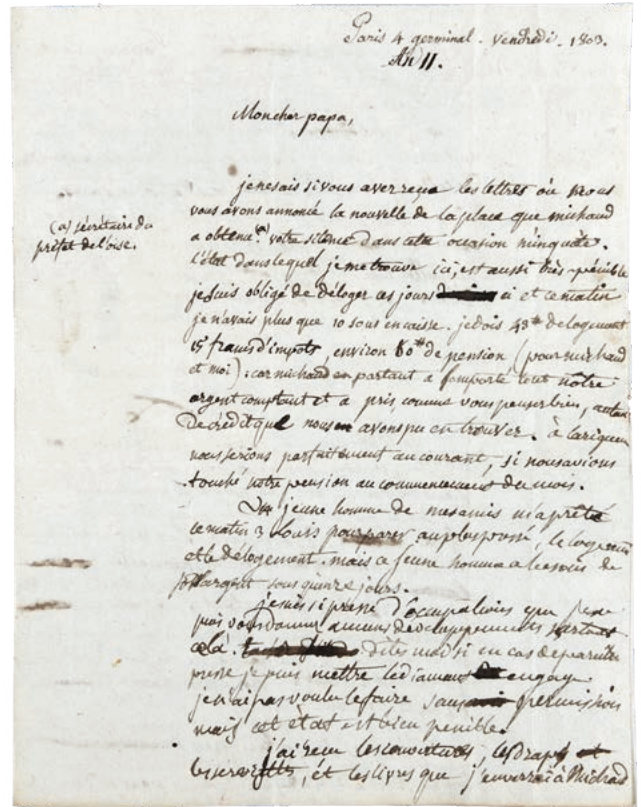 Paris 4 germinal - vendredi - 1803.
An 11.
Mon cher papa,
je ne sais si vous avez reçu les lettres où nous
vous avons annoncé la nouvelle de la place que michaud
(a) sécrétaire du
préfet de l'oise.
a obtenue (a) votre silence dans cette occasion m'inquiète.
l'état dans lequel je me trouve ici, est aussi très-pénible
je suis obligé de déloger ces jours ci et ce matin
je n'avais plus que 10 sous en caisse. je dois 43# de logement
15 francs d'impots, environ 80# de pension (pour michaud
et moi). car michaud en partant a emporté tout notre
argent comptant et a pris, comme vous pensez bien, autant
de crédit que nous en avons pu en trouver. à la rigueur
nous serions parfaitement au courant, si nous avions
touché notre pension au commencement du mois.
Un jeune homme de mes amis m'a prêté
ce matin 3 louis pour parer au plus pressé, le logement
et le délogement. mais ce jeune homme a besoin de
son argent sous quinze jours.
je suis si pressé d'occupations que je ne
puis vous donner aucuns développements sur tout
cela. dites moi si en cas de
presse je puis mettre le diamant en gage
je n'ai pas voulu le faire sans permission
mais cet état est bien penible.
j'ai reçu les couvertures, les draps et
les serviettes, et les livres que j'enverrai à Michaud